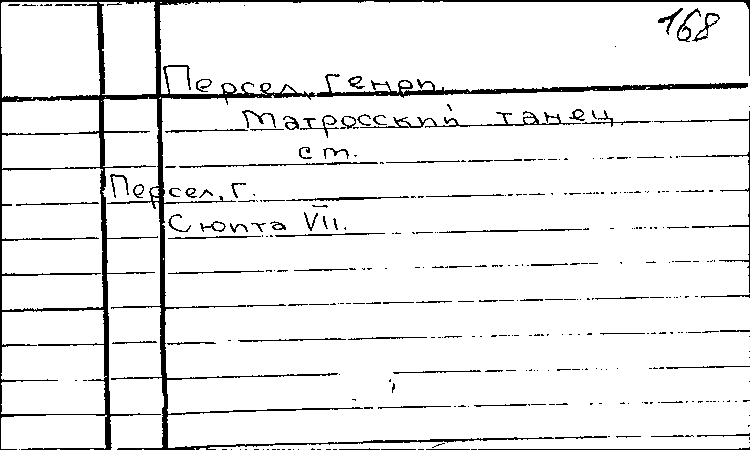 168
Персел, Генри.
Матросский танец
ст.
Персел, Г.
Сюита VII.